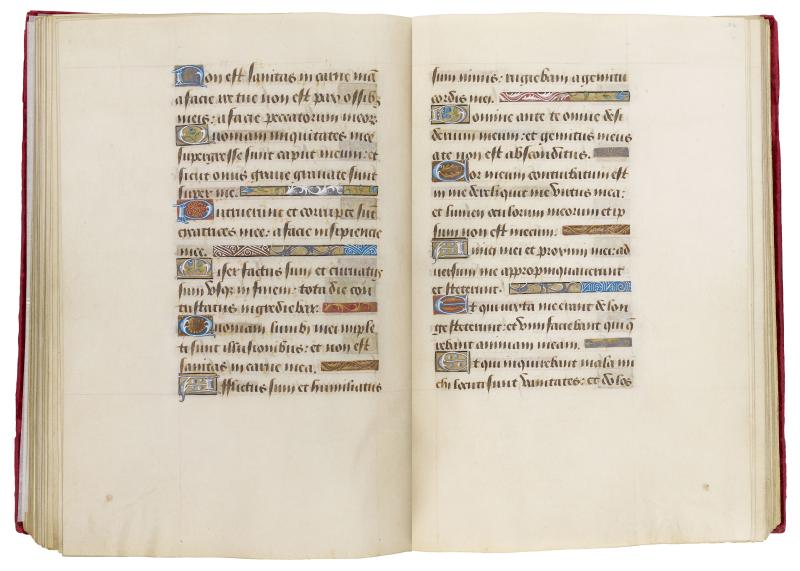 Non est sanitas in carne mea
a facie ire tue non est pax ossib9
meis: a facie peccatorum meor
Quoniam iniquitates mee
supergresse sunt caput meum: et
sicut onus grave gravate sunt
super me.
Putruerunt et corrupte sūt
cicatrices mee: a facie insipiencie
mee.
Miser factus sum et curvatus
sum usque in finem: tota die con
tristatus ingrediebar.
Quoniam lumbi mei imple
ti sunt illusionibus: et non est
sanitas in carne mea.
Afflictus sum et humiliatus
sum nimis: rugiebam a gemitu
cordis mei.
Domine ante te omne desi
derium meum: et gemitus meus
a te non est absconditus.
Cor meum conturbatum est
in me dereliquit me virtus mea:
et lumen oculorum meorum et ip
sum non est mecum.
Amici mei et proximi mei: ad
versum me appropinquaverunt
et steterunt.
Et qui iuxta me erant de lon
ge steterunt: et vim faciebant qui q̄
rebant animam meam.
Et qui inquirebant mala mi
chi locuti sunt vanitates: et dolos